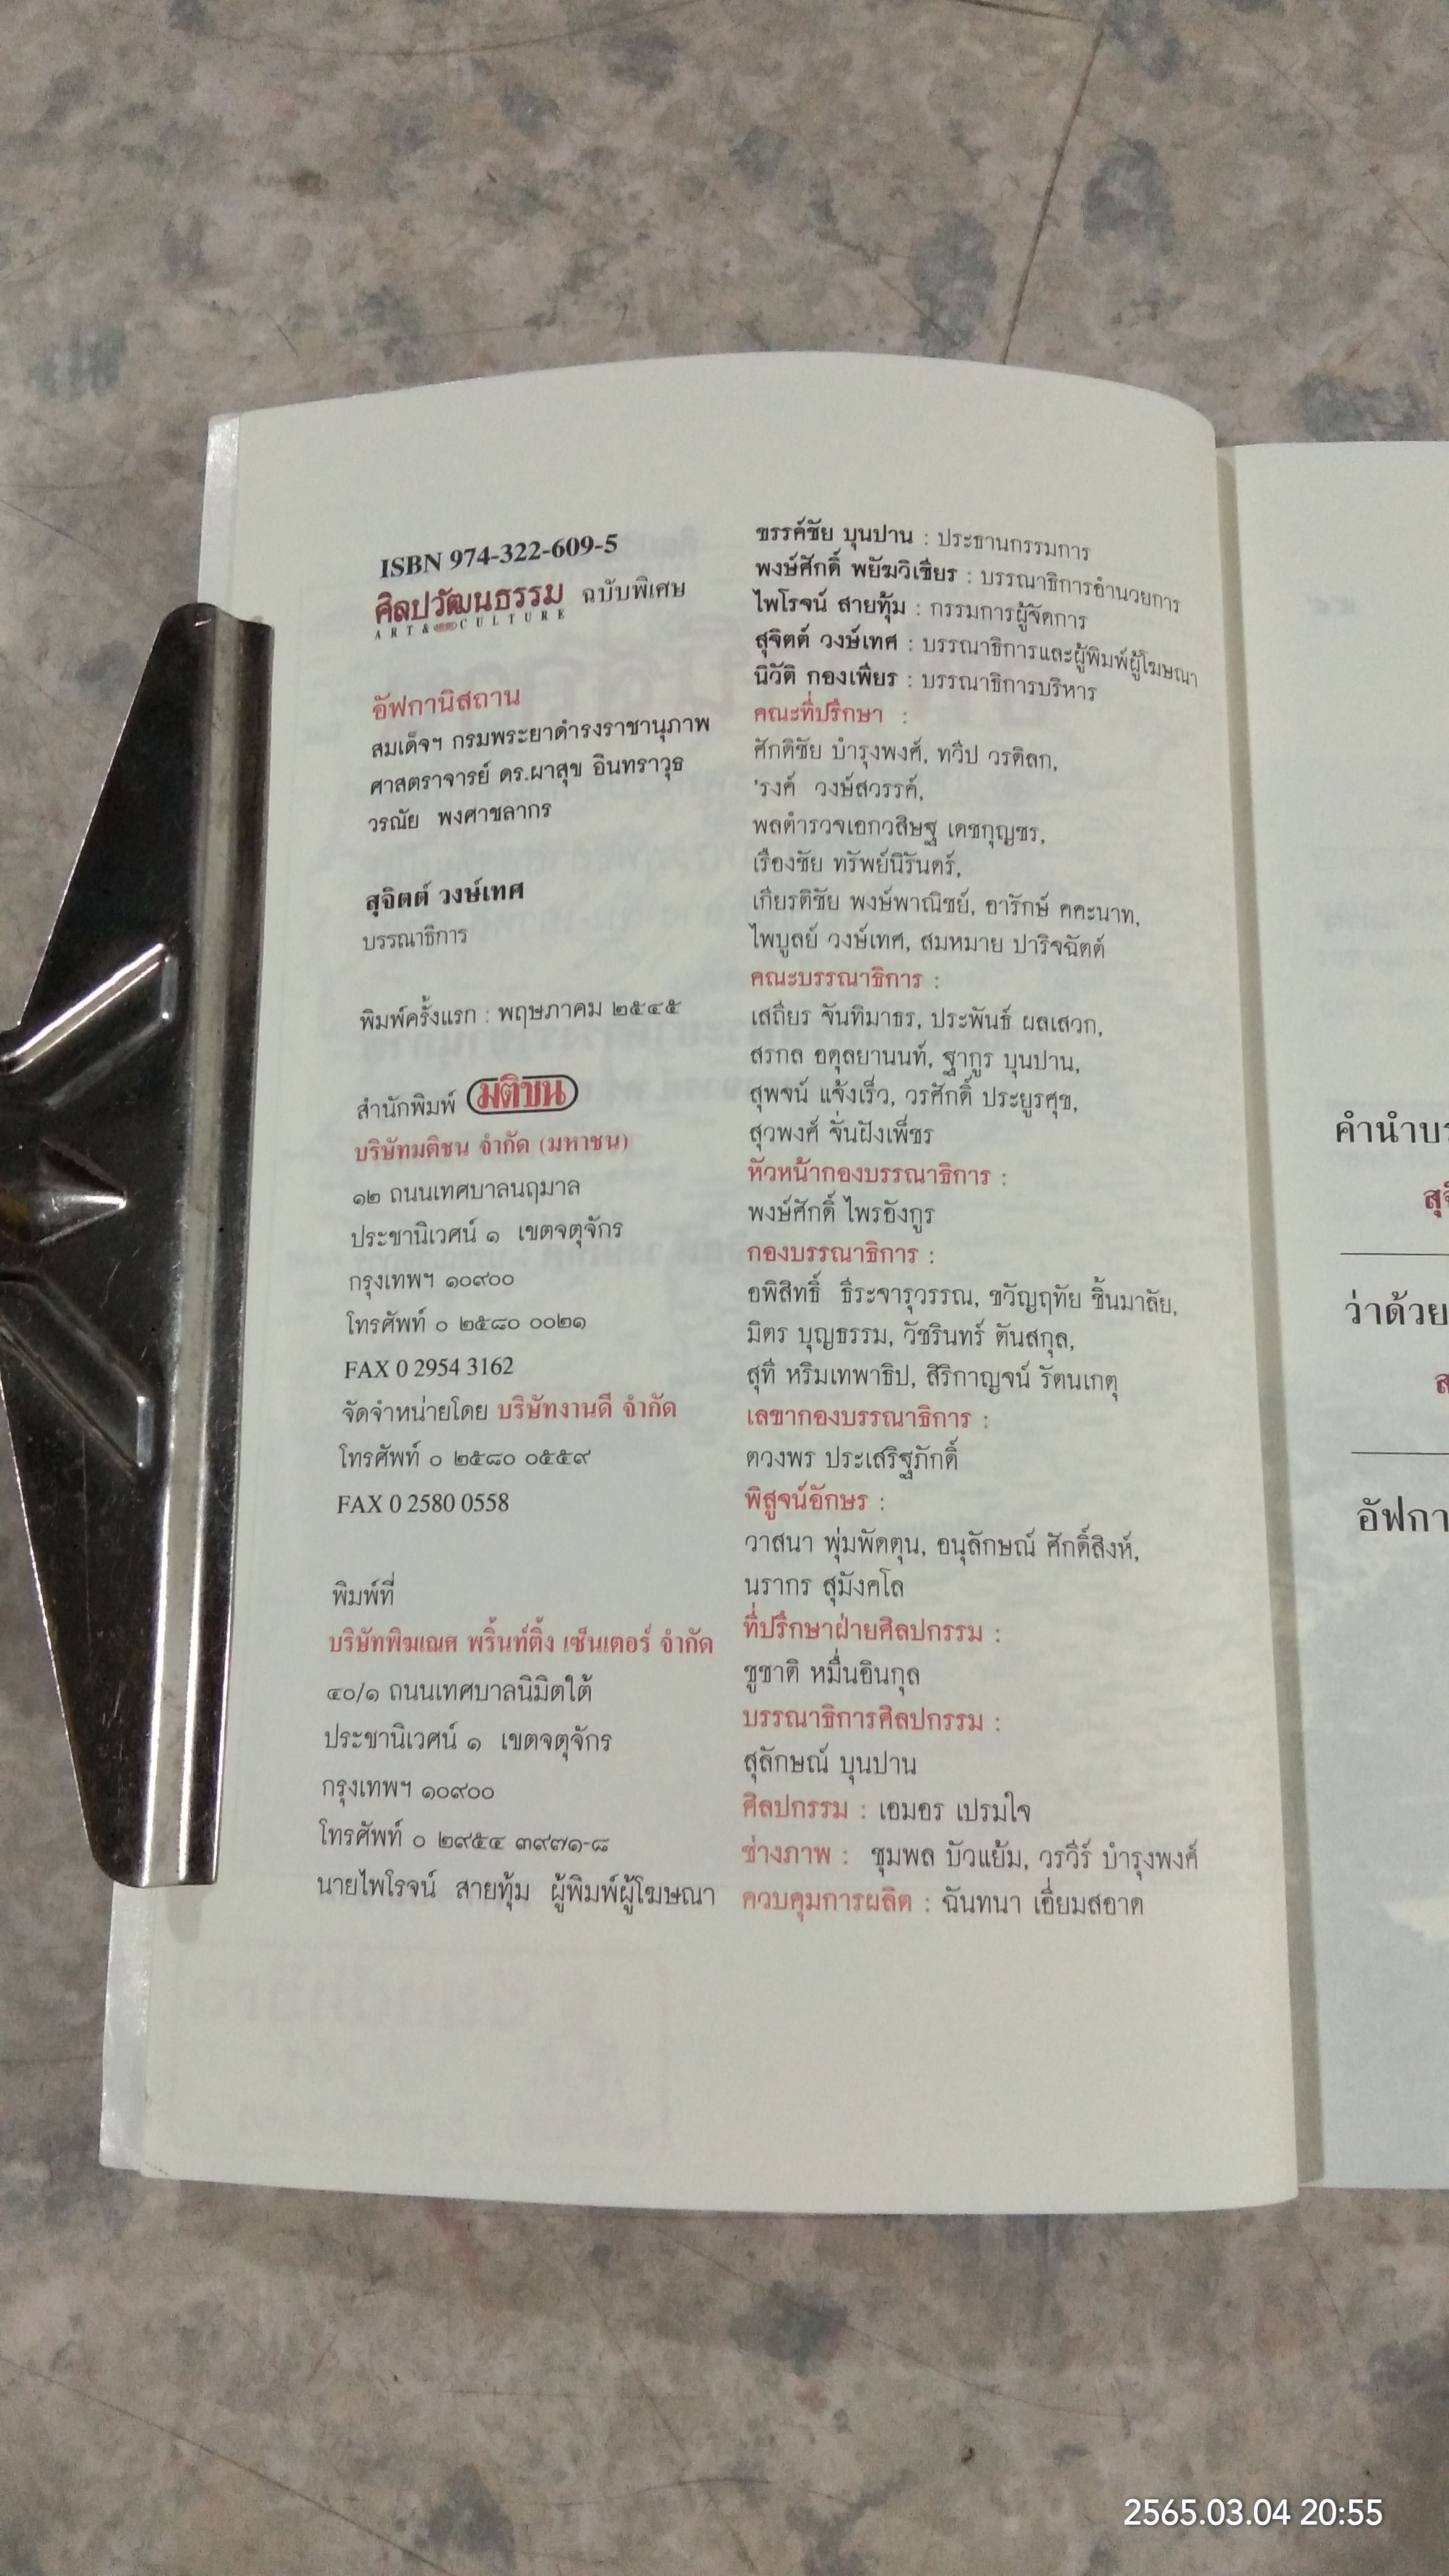 ISBN 974-322-609-5
ศิลปวัฒนธรรม ฉบับพิเศษ
ART & CULTURE
อัฟกานิสถาน
สมเด็จฯ กรมพระยาดำรงราชานุภาพ
ศาสตราจารย์ ดร.ผาสุข อินทราวุธ
วรณัย พงศาชลากร
สุจิตต์ วงษ์เทศ
บรรณาธิการ
พิมพ์ครั้งแรก : พฤษภาคม ๒๕๔๕
สำนักพิมพ์ มติชน
บริษัทมติชน จำกัด (มหาชน)
๑๒ ถนนเทศบาลนฤมาล
ประชานิเวศน์ ๑ เขตจตุจักร
กรุงเทพฯ ๑๐๙๐๐
โทรศัพท์ ๐ ๒๕๘๐ ๐๐๒๑
FAX 0 2954 3162
จัดจำหน่ายโดย บริษัทงานดี จำกัด
โทรศัพท์ ๐ ๒๕๘๐ ๐๕๕๙
FAX 0 2580 0558
พิมพ์ที่
บริษัทพิฆเณศ พริ้นท์ติ้ง เซ็นเตอร์ จำกัด
๔๐/๑ ถนนเทศบาลนิมิตใต้
ประชานิเวศน์ ๑ เขตจตุจักร
กรุงเทพฯ ๑๐๙๐๐
โทรศัพท์ ๐ ๒๙๕๔ ๓๙๗๑-๘
นายไพโรจน์ สายทุ้ม ผู้พิมพ์ผู้โฆษณา
ขรรค์ชัย บุนปาน : ประธานกรรมการ
พงษ์ศักดิ์ พยัฆวิเชียร : บรรณาธิการอำนวยการ
ไพโรจน์ สายทุ้ม : กรรมการผู้จัดการ
สุจิตต์ วงษ์เทศ : บรรณาธิการและผู้พิมพ์ผู้โฆษณา
นิวัติ กองเพียร : บรรณาธิการบริหาร
คณะที่ปรึกษา :
ศักดิชัย บำรุงพงศ์, ทวีป วรดิลก,
'รงค์ วงษ์สวรรค์,
พลตำรวจเอกวสิษฐ เดชกุญชร,
เรืองชัย ทรัพย์นิรันดร์,
เกียรติชัย พงษ์พาณิชย์, อารักษ์ คคะนาท,
ไพบูลย์ วงษ์เทศ, สมหมาย ปาริจฉัตต์
คณะบรรณาธิการ :
เสถียร จันทิมาธร, ประพันธ์ ผลเสวก,
สรกล อดุลยานนท์, ฐากูร บุนปาน,
สุพจน์ แจ้งเร็ว, วรศักดิ์ ประยูรศุข,
สุวพงศ์ จั่นฝังเพ็ชร
หัวหน้ากองบรรณาธิการ :
พงษ์ศักดิ์ ไพรอังกูร
กองบรรณาธิการ :
อพิสิทธิ์ ธีระจารุวรรณ, ขวัญฤทัย ชิ้นมาลัย,
มิตร บุญธรรม, วัชรินทร์ ตันสกุล,
สุที หริมเทพาธิป, สิริกาญจน์ รัตนเกตุ
เลขากองบรรณาธิการ :
ตวงพร ประเสริฐภักดิ์
พิสูจน์อักษร :
วาสนา พุ่มพัดตุน, อนุลักษณ์ ศักดิ์สิงห์,
นรากร สุมังคโล
ที่ปรึกษาฝ่ายศิลปกรรม :
ชูชาติ หมื่นอินกุล
บรรณาธิการศิลปกรรม :
สุลักษณ์ บุนปาน
ศิลปกรรม : เอมอร เปรมใจ
ช่างภาพ : ชุมพล บัวแย้ม, วรวีร์ บำรุงพงศ์
ควบคุมการผลิต : ฉันทนา เอี่ยมสอาด
คำนำบร
ว่าด้วย
อัฟกา
2565.03.04 20:55